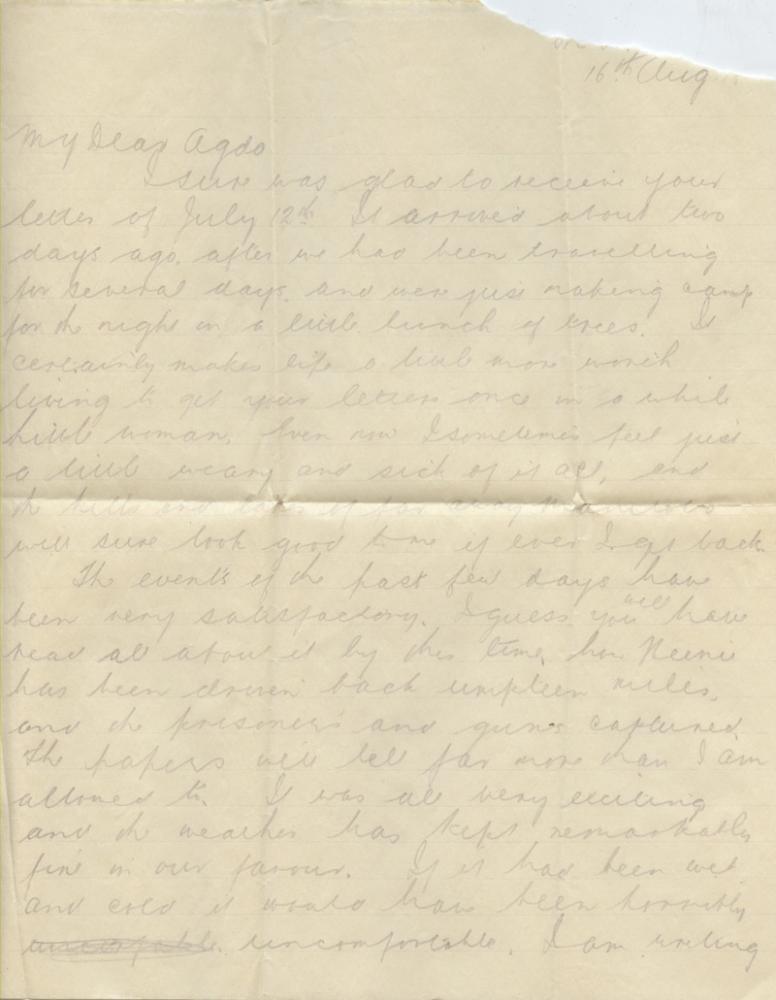 16th Aug
My Dear Agdo
I sure was glad to receive your
letter of July 12th It arrived about two
days ago, after we had been travelling
for several days, and were just making camp
for the night in a little bunch of trees. It
certainly makes life a little more worth
living to get your letters once in a while
little woman, Even now I sometimes feel just
a little weary and sick of it all, and
the hills and of far away Manitoba
will sure look good to me if ever I get back.
The events of the past few days have
been very satisfactory. I guess you will have
read all about it by this time, how Heinie
has been driven back umpteen miles,
and the prisoners and guns captured.
The papers will tell far more than I am
allowed to. It was all very exciting
and the weather has kept remarkably
fine in our favour. If it had been wet
and cold it would have been horribly
uncomfortable. I am writing